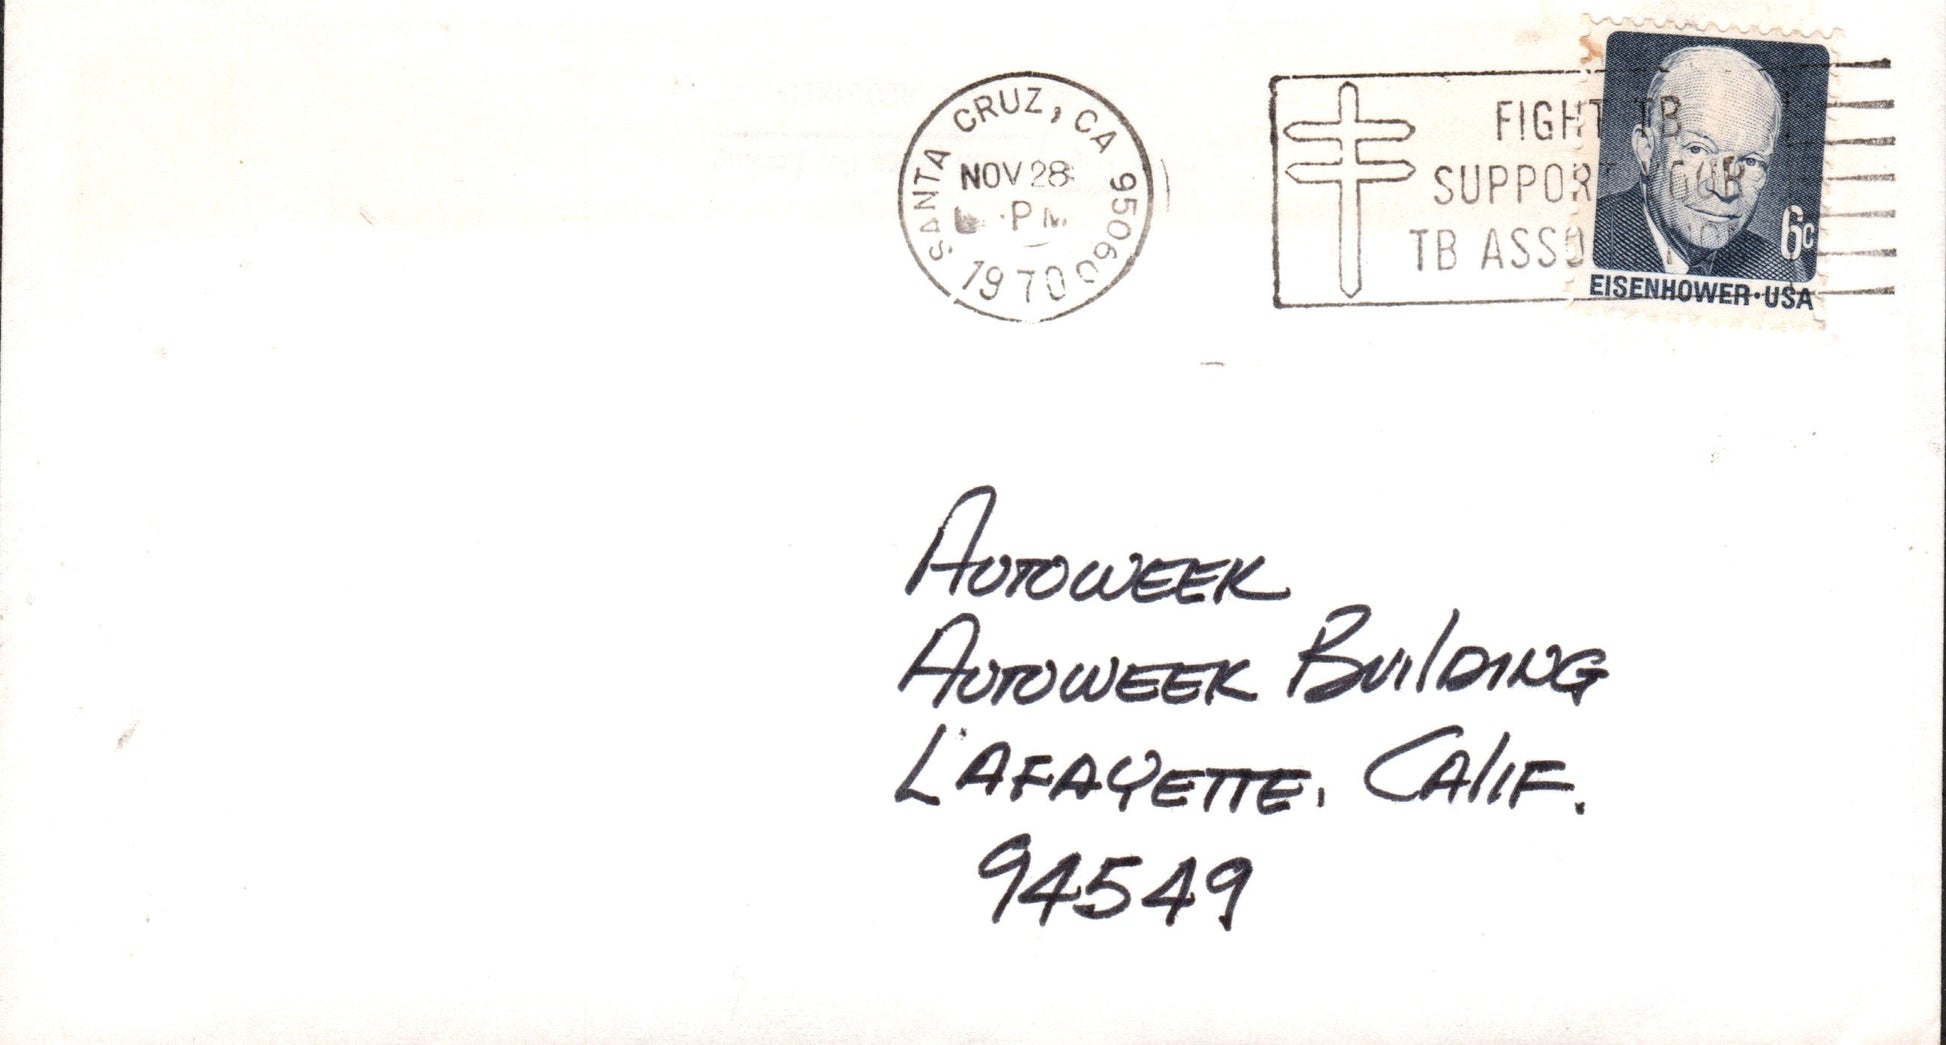 SANTA CRUZ, CA 95060
NOV 28
PM
1970
FIGHT TB
SUPPORT YOUR
TB ASSOCIATION
6c
EISENHOWER·USA
AUTOWEEK
AUTOWEEK BUILDING
LAFAYETTE, CALIF.
94549